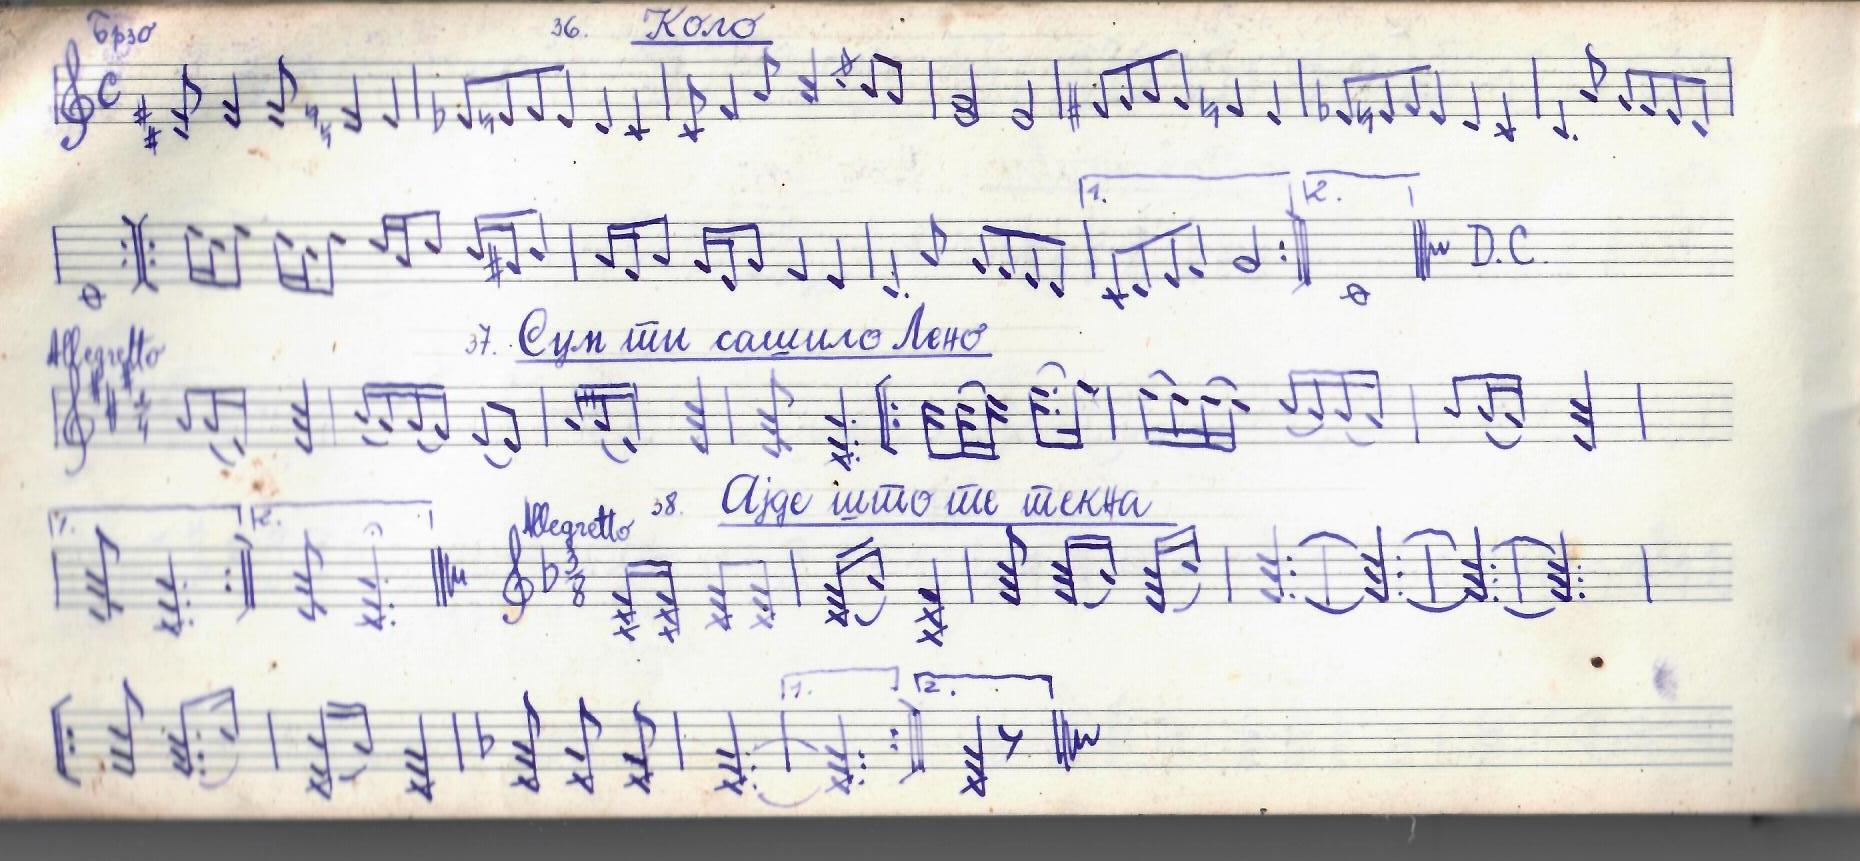 Брзо 36. Коло
1. 2. D.C.
Allegretto 37. Сум ти сашило Лено
1. 2. Allegretto 38. Ајде што те текна
3/8
1. 2.